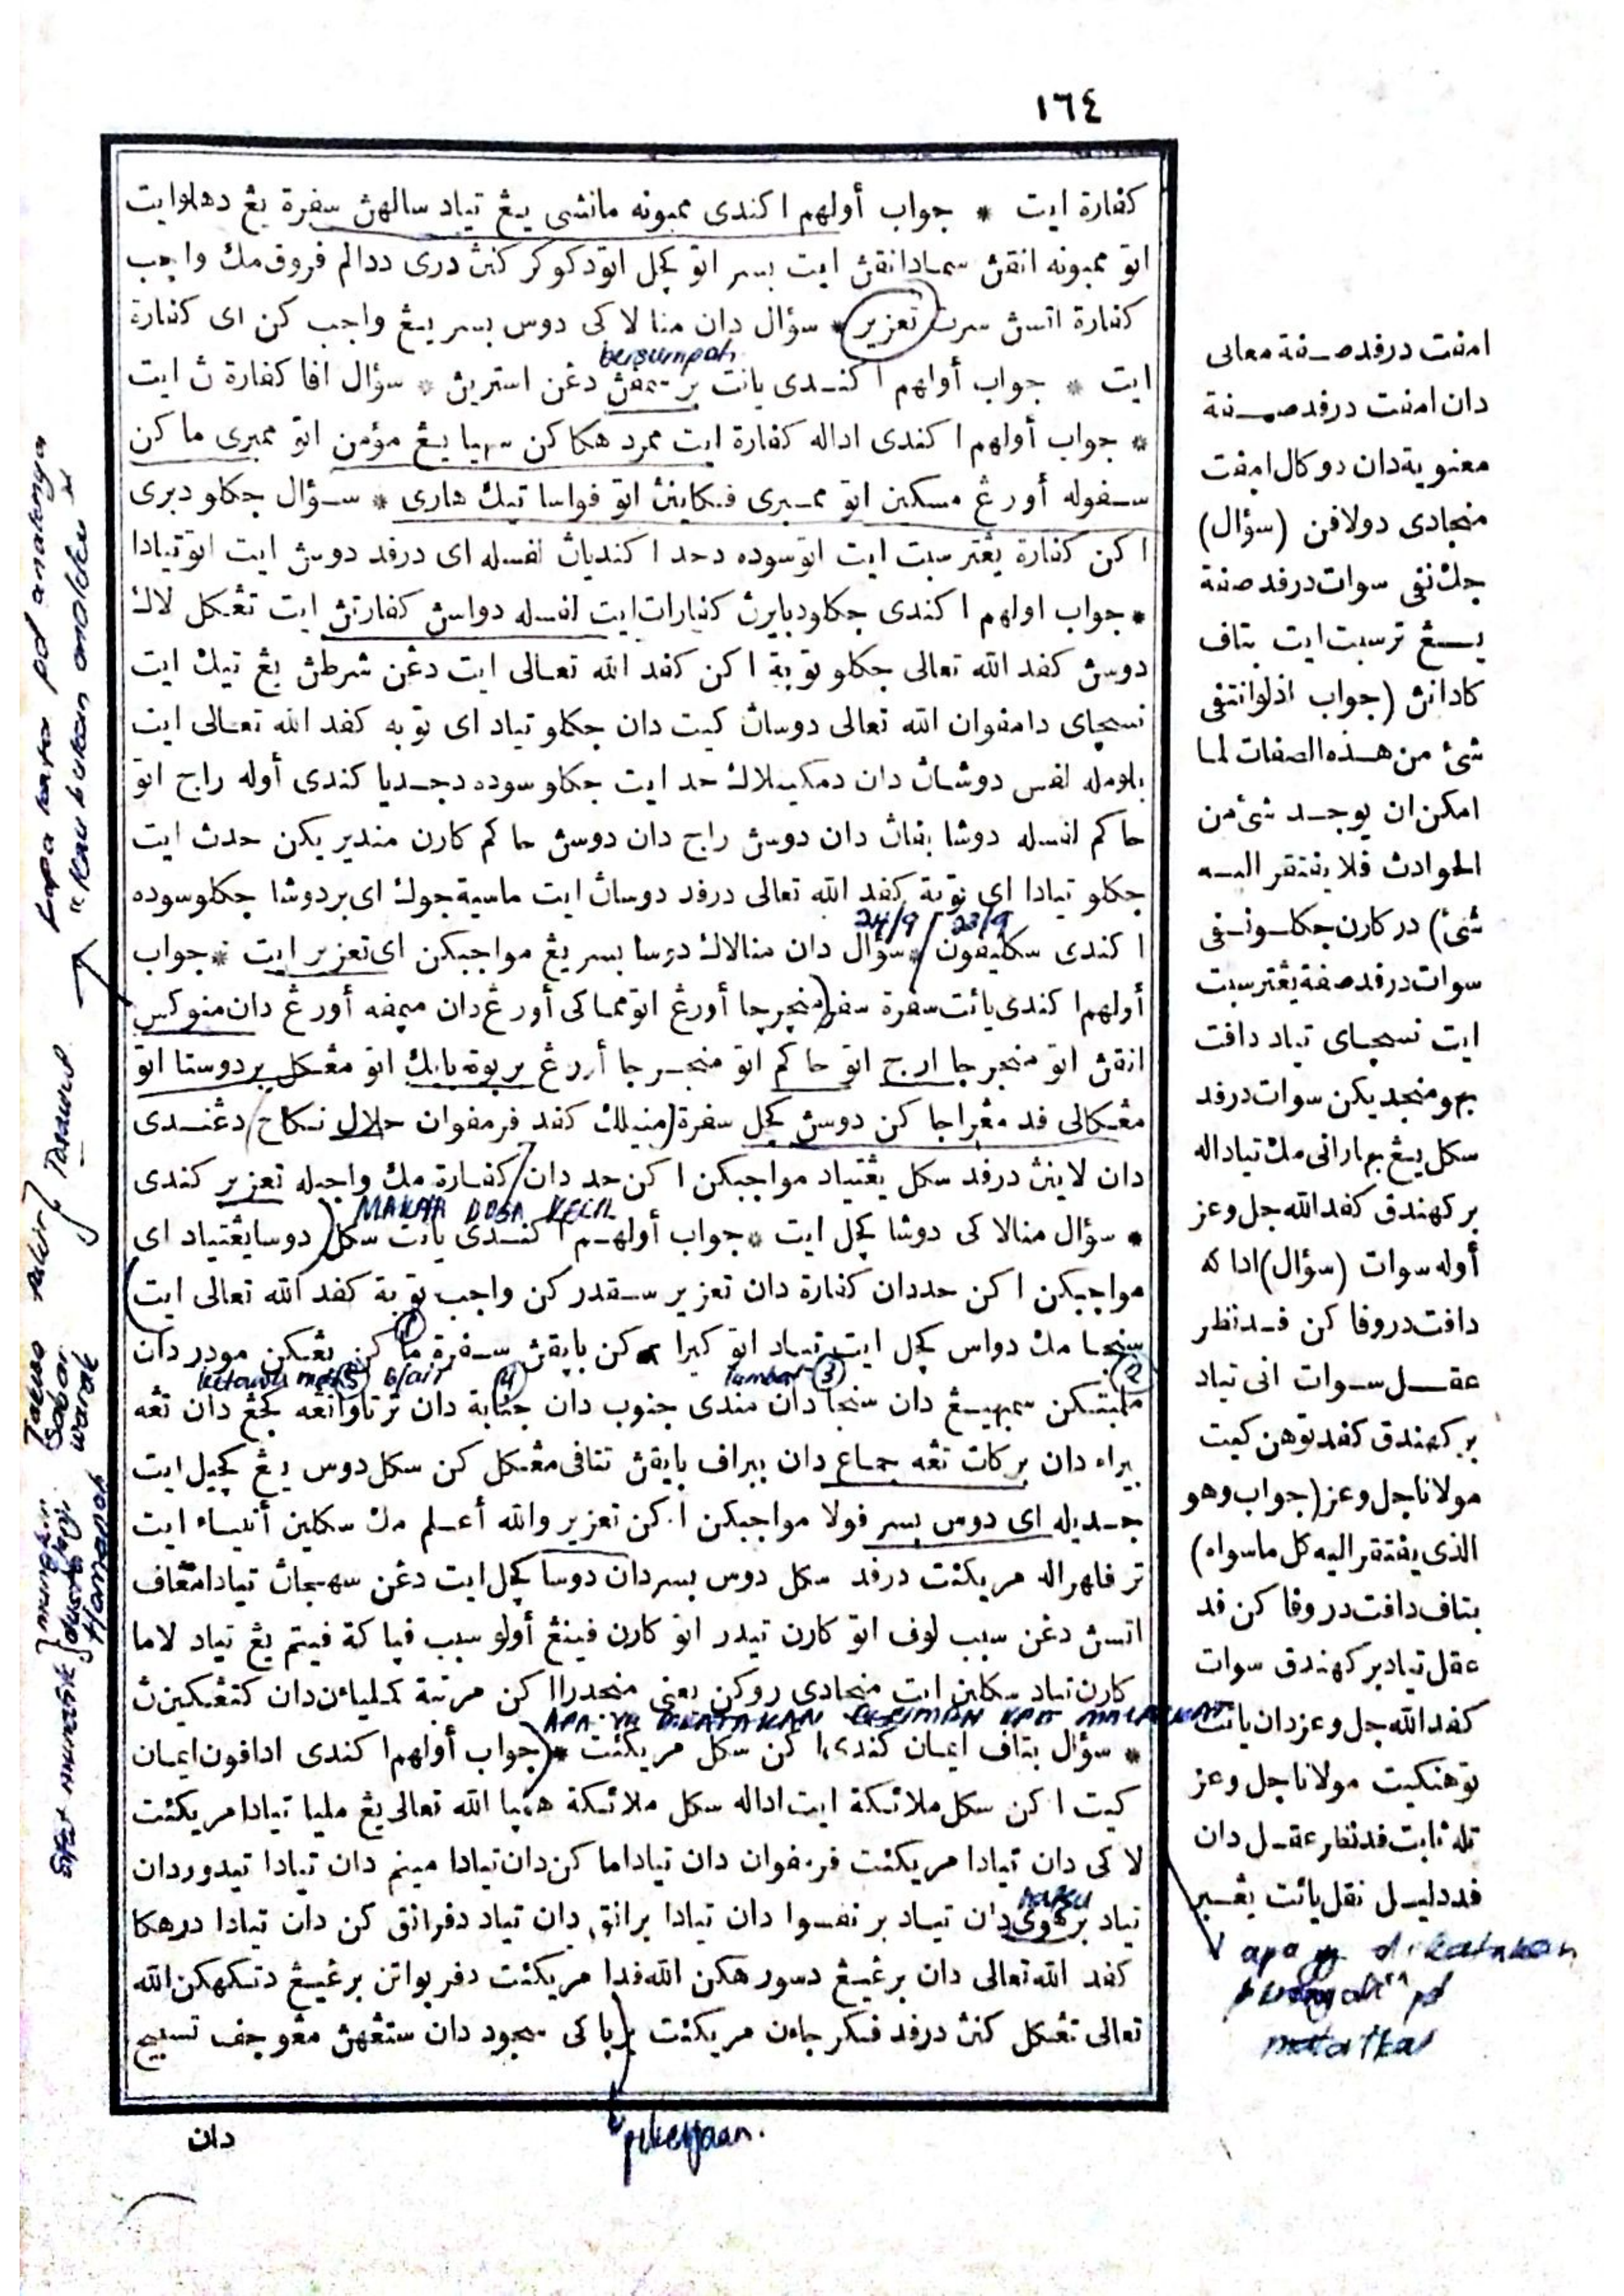 ١٦٤
كفارة ايت * جواب أولهم اكندى ممبونه مانشى يڠ تياد سالهن سفرة يڠ دهلوايت
اتو ممبونه انقڽ سمادانقڽ ايت بسر اتو كچل اتودكوكر كنڽ درى ددالم فروق مك واجب
كفارة اتسڽ سرت تعزير * سؤال دان منا لاكى دوس بسر يڠ واجب كن اى كفارة
bersumpah
ايت * جواب أولهم اكندى يائت دڠن استريڽ * سؤال افا كفارة ڽ ايت
* جواب أولهم اكندى اداله كفارة ايت ممردهكاكن سهيا يڠ مؤمن اتو ممبرى ماكن
سفوله أورڠ مسكين اتو ممبرى فكاينڽ اتو فواسا تيك هارى * سؤال جكلو دبرى
اكن كفارة يڠترسبت ايت اتو سوده دحد اكنديان لفسله اى درفد دوسڽ ايت اتو تيادا
* جواب اولهم اكندى جكلودبايرڽ كفارات ايت لفسله دواسڽ كفارتڽ ايت تڠكل لاك
دوسڽ كفد الله تعالى جكلو توبة اكن كفد الله تعالى ايت دڠن شرطڽ يڠ تيك ايت
نسچاى دامفوان الله تعالى دوسان كيت دان جكلو تياد اى توبه كفد الله تعالى ايت
بلومله لفس دوشان دان دمكينلاك حد ايت جكلو سوده دحديا كندى أوله راج اتو
حاكم لفسله دوشا بناتڽ دان دوسڽ راج دان دوسڽ حاكم كارن منديريكن حدث ايت
جكلو تيادا اى توبة كفد الله تعالى درفد دوسان ايت ماسية جوك اى بردوشا جكلو سوده
24/9 23/9
اكندى سكليفون * سؤال دان منالاك دوسا بسر يڠ مواجبكن اى تعزير ايت * جواب
أولهم اكندى يائت سفرة سفر منچرچا أورڠ اتو مماكى أورڠ دان ميمفه أورڠ دان منوكس
انقڽ اتو منچرچا ارج اتو حاكم اتو منچرچا أورڠ بربوة بايك اتو مڠكل بردوستا اتو
مڠكالى فد مڠراجاكن دوسڽ كچل سفرة منيلك كفد فرمفوان حلال نكاح دڠندى
دان لاينڽ درفد سكل يڠتياد مواجبكن اكن حد دان كفارة مك واجبله تعزير كندى
MAKAH DOSA KECIL
* سؤال منالاكى دوشا كچل ايت * جواب أولهم اكندى يائت سكل دوسا يڠتياد اى
مواجبكن اكن حددان كفارة دان تعزير سقدركن واجب توبة كفد الله تعالى ايت
سنجا مك دواس كچل ايت تياد اتو كيرا كن بايقڽ سفرة ماكن يڠكن مودر دان
tambat ③ ② ④
ملبتكن سمبهيڠ دان سنجا دان مندى جنوب دان جنابة دان ترتاوا تڠه كچڠ دان تڠه
بيراء دان بركات تڠه جماع دان ببراف بايقڽ تتافى مڠكل كن سكل دوس يڠ كچيل ايت
جديله اى دوس بسر فولا مواجبكن اكن تعزير والله أعلم مك سكلين أنبياء ايت
ترفلهراله مريكئت درفد سكل دوس بسردان دوسا كچل ايت دڠن سهجاڽ تيادامڠاف
اتسڽ دڠن سبب لوف اتو كارن تيدر اتو كارن فينڠ أولو سبب فياكة فيتم يڠ تياد لاما
كارن تياد سكلين ايت منجادى روكن يعنى منحدراا كن مرتبة كملياءن دان كتڠكينڽ
APA YG DIKATAKAN BERIMAN KPD MALAIKAT
* سؤال بتاف ايمان كندى اكن سكل مريكئت * جواب أولهم اكندى ادافون ايمان
كيت اكن سكل ملائكة ايت اداله سكل ملائكة همبا الله تعالى يڠ مليا تيادا مريكئت
لاكى دان تيادا مريكئت فرمفوان دان تياداماكن دان تيادا مينم دان تيادا تيدوردان
nafsu
تياد برهوى دان تياد برنفسوا دان تيادا برانق دان تياد دفرانق كن دان تيادا درهكا
كفد الله تعالى دان برڠييڠ دسورهكن الله فدا مريكئت دفربواتن برڠييڠ دتكهكن الله
تعالى تڠكل كنڽ درفد فكرجاءن مريكئت برباكى سجود دان ستڠهڽ مڠوجف تسبيح
دان
pekerjaan.
امفت درفدصفة معانى
دان امفت درفدصفة
معنوية دان دوكال امفت
منجادى دولافن (سؤال)
جك نفى سوات درفدصفة
يڠ ترسبت ايت بتاف
كادانڽ (جواب اذلوانتفى
شئ من هذه الصفات لما
امكن ان يوجد شئ من
الحوادث فلا يفتقر اليه
شئ) دركارن جكلو نفى
سوات درفدصفة يڠترسبت
ايت نسچاى تياد دافت
بهو منجديكن سوات درفد
سكل يڠ بهارانى مك تياداله
بركهندق كفد الله جل وعز
أوله سوات (سؤال) اداكه
دافت دروفاكن فد نظر
عقل سوات انى تياد
بركهندق كفد توهن كيت
مولانا جل وعز (جواب وهو
الذى يفتقر اليه كل ماسواه)
بتاف دافت دروفاكن فد
عقل تياد بركهندق سوات
كفد الله جل وعز دان يائت
توهنكيت مولانا جل وعز
تله ثابت فدنظر عقل دان
فددليل نقل يائت يڠبر
apa yg dikatakan
pd
malaikat
Kafa kata pd anaknya
"Kau bukan anakku"
Tasawuf
Takwa
Sabar
Warak
Amanah
sifat munafik
mungkir
dusta janji